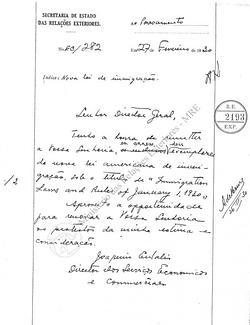 SECRETARIA DE ESTADO
DAS RELAÇÕES EXTERIORES.
282
Nova lei de immigração.
Senhor Director Geral,
Tenho a honra de remetter
a Vossa Senhoria,
da nova lei americana de immi-
gração, sob o titulo de "Immigration
Laws and Rules of January 1,
Aproveito a opportunidade
para renovar a Vossa Senhoria
os protestos da minha estima e
consideração.
Joaquim Eulalio
Director dos Serviços Economicos
e Commerciaes
1/2
S. E.
2193
EXP.